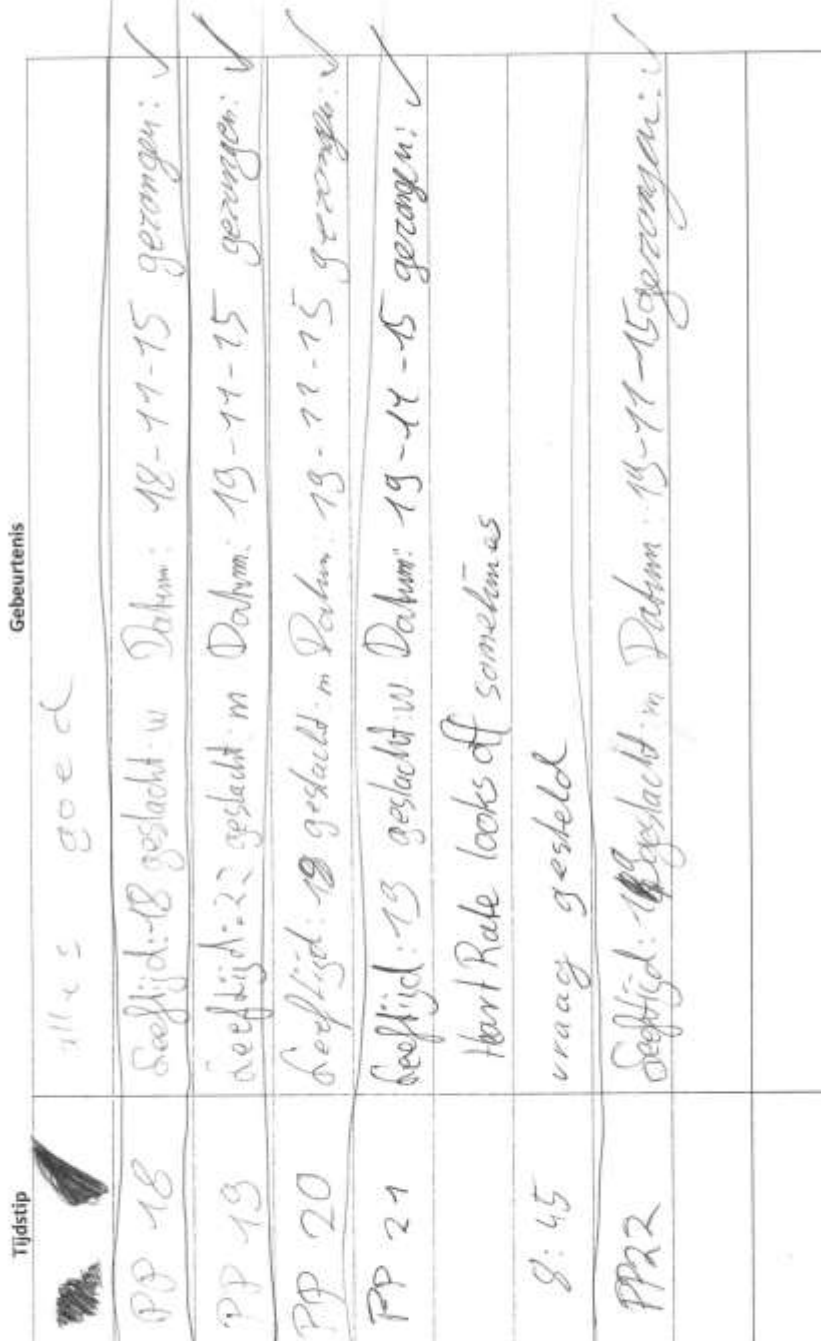 Tijdstip Gebeurtenis
alles goed
PP 18 Leeftijd: 18 geslacht: w Datum: 18-11-15 gezongen: ✓
PP 19 Leeftijd: 22 geslacht: m Datum: 19-11-15 gezongen: ✓
PP 20 Leeftijd: 18 geslacht: m Datum: 19-11-15 gezongen: ✓
PP 21 Leeftijd: 19 geslacht: w Datum: 19-11-15 gezongen: ✓
Hart Rate looks off sometimes
8:45 vraag gesteld
PP22 Leeftijd: geslacht: m Datum: 19-11-15 gezongen: ✓